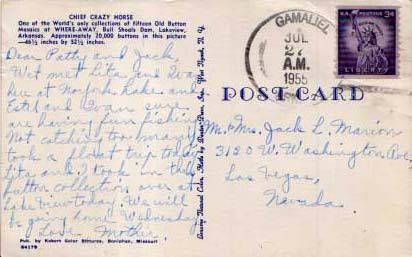 CHIEF CRAZY HORSE
One of the World's only collections of fifteen Old Button
Mosaics at WHERE-AWAY, Bull Shoals Dam, Lakeview,
Arkansas. Approximately 20,000 buttons in this picture
—46½ inches by 52½ inches.
Dear Patty and Jack,
We met Lita and Ivan
here at Norfork Lake and
Estel and Ivan sure
are having fun fishing
Not catching too many
took a float trip today
Lita and I took in this
button collection over at
Lakeview today. We will
be going home Wednesday
Love Mother
Pub. by Kobert Color Pictures, Doniphan, Missouri
84179
Luxury Natural Color, Made by Dexter Press, Inc., West Nyack, N. Y.
GAMALIEL
JUL
27
A.M.
1955
U.S. POSTAGE 3¢
LIBERTY
POST CARD
Mr. & Mrs. Jack L. Marion
3120 W. Washington Ave,
Las Vegas,
Nevada